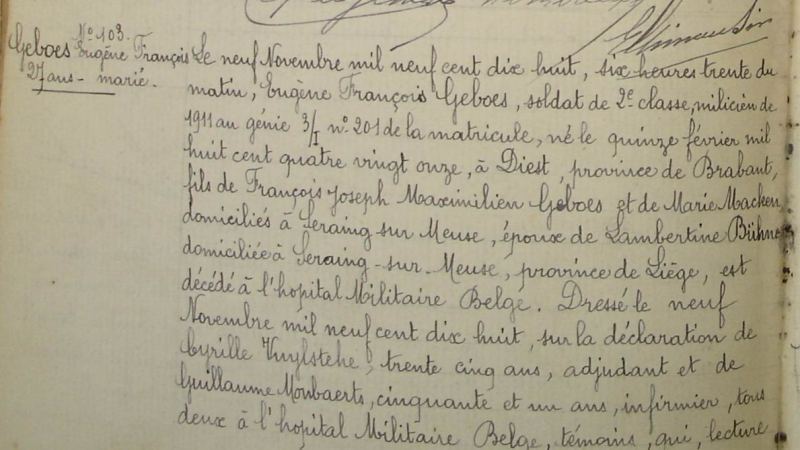 N° 103.
Geboes Eugène François
27 ans - marié.
Le neuf Novembre mil neuf cent dix huit, six heures trente du
matin, Eugène François Geboes, soldat de 2e classe, milicien de
1911 au génie 3/I n° 201 de la matricule, né le quinze février mil
huit cent quatre vingt onze, à Diest, province de Brabant,
fils de François Joseph Maximilien Geboes et de Marie Macken
domiciliés à Seraing sur Meuse, époux de Lambertine Bühne
domiciliée à Seraing-sur-Meuse, province de Liège, est
décédé à l'hopital Militaire Belge. Dressé le neuf
Novembre mil neuf cent dix huit, sur la déclaration de
Cyrille Vuylsteke, trente cinq ans, adjudant et de
Guillaume Monbaerts, cinquante et un ans, infirmier, tous
deux à l'hopital Militaire Belge, témoins, qui, lecture